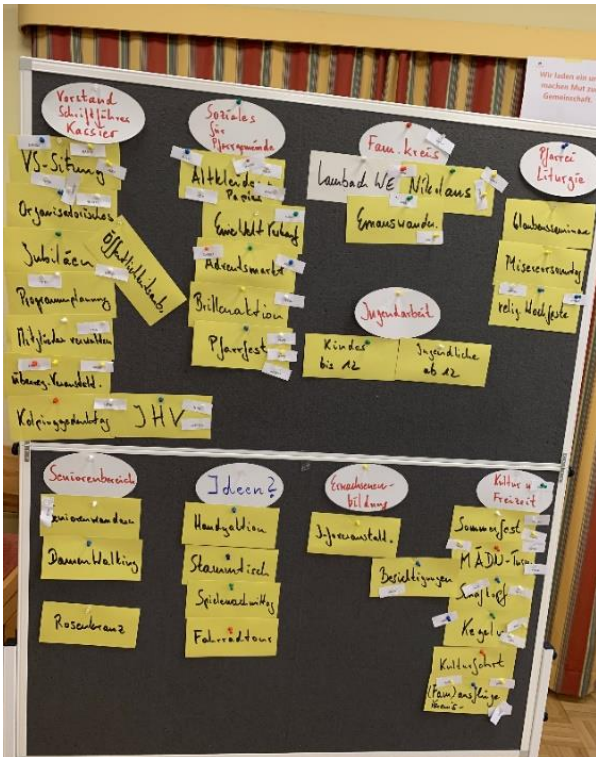 Wir laden ein un
machen Mut zu
Gemeinschaft.
Vorstand
Schriftführer
Kassier
VS-Sitzung
Organisatorisches
Jubiläen
Öffentlichkeitsarb.
Programmplanung
Mitglieder verwalten
überreg. Veranstalt.
Kolpinggedenktag
JHV
Soziales
für
Pfarrgemeinde
Altkleider
Papier
Eine Welt Verkauf
Adventsmarkt
Brillenaktion
Pfarrfest
Fam.kreis
Lambach WE
Nikolaus
Emauswander.
Jugendarbeit
Kinder
bis 12
Jugendliche
ab 12
Pfarrei
Liturgie
Glaubensseminare
Misereorsonntag
relig. Hochfeste
Seniorenbereich
Seniorenwandern
Damen Walking
Rosenkranz
Ideen?
Handyaktion
Stammtisch
Spielenachmittag
Fahrradtour
Erwachsenen-
bildung
Inforanstalt.
Besichtigungen
Kultur u.
Freizeit
Sommerfest
MÄDN-Turn
Schafkopf
Kegeln
Kulturfahrt
(Fam)ausflüge